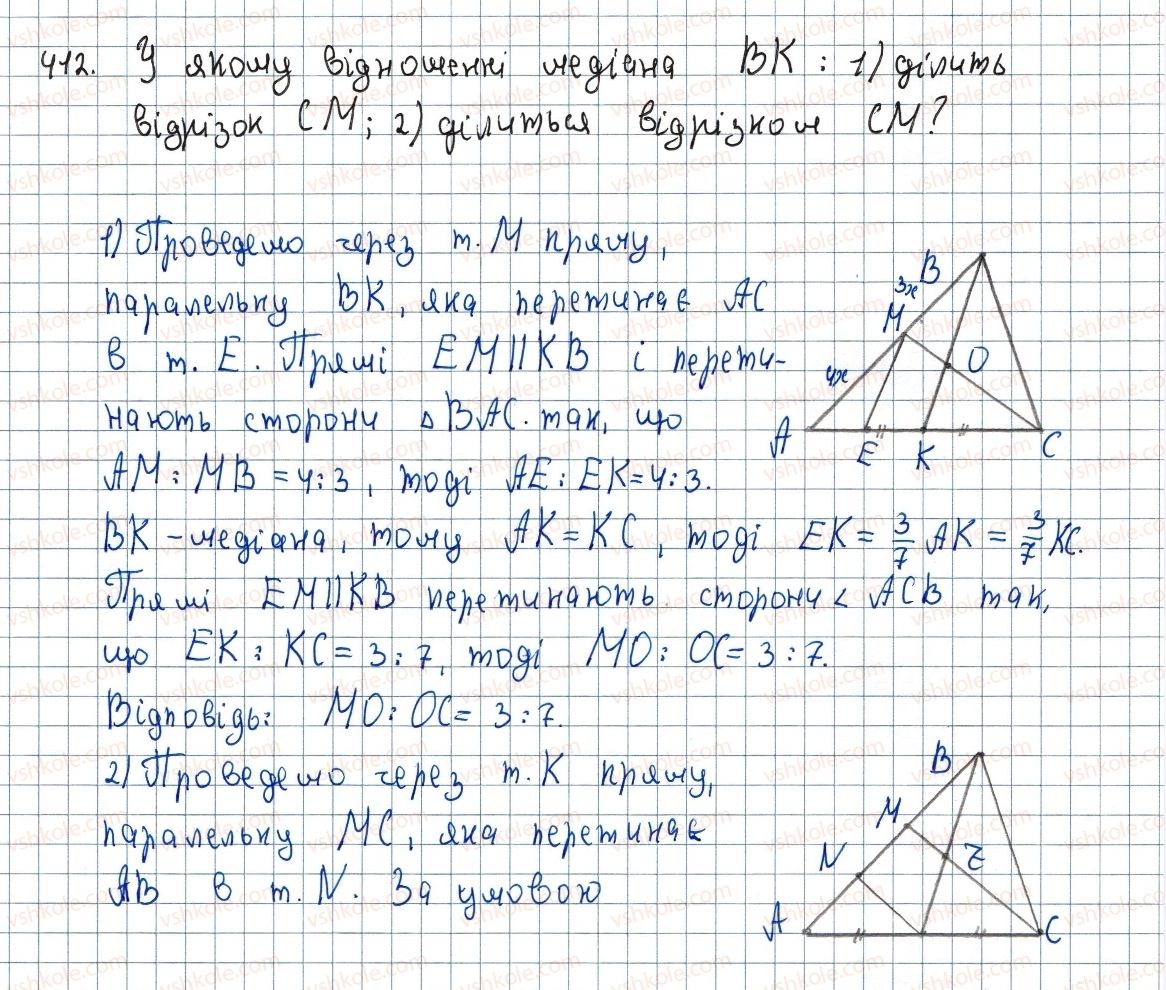 412. У якому відношенні медіана BK : 1) ділить
відрізок CM; 2) ділиться відрізком CM?
1) Проведемо через т. M пряму,
паралельну BK, яка перетинає AC
в т. E. Прямі EM||KB і перети-
нають сторони △BAC так, що
AM : MB = 4:3, тоді AE : EK = 4:3.
BK – медіана, тому AK = KC, тоді EK = 3/7 AK = 3/7 KC.
Прямі EM||KB перетинають сторони ∠ ACB так,
що EK : KC = 3 : 7, тоді MO : OC = 3 : 7.
Відповідь: MO : OC = 3 : 7.
2) Проведемо через т. K пряму,
паралельну MC, яка перетинає
AB в т. N. За умовою
B
3x
M
4x
O
A
E
K
C
B
M
N
Z
A
C